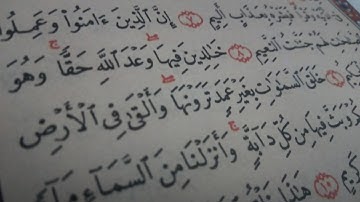 وَقْرًا فَبَشِّرْهُ بِعَذَابٍ أَلِيمٍ ٧ إِنَّ ٱلَّذِينَ ءَامَنُوا۟ وَعَمِلُوا۟
لَهُمْ جَنَّٰتُ ٱلنَّعِيمِ ٨ خَٰلِدِينَ فِيهَا وَعْدَ ٱللَّهِ حَقًّا وَهُوَ
خَلَقَ ٱلسَّمَٰوَٰتِ بِغَيْرِ عَمَدٍ تَرَوْنَهَا وَأَلْقَىٰ فِى ٱلْأَرْضِ
وَبَثَّ فِيهَا مِن كُلِّ دَآبَّةٍ وَأَنزَلْنَا مِنَ ٱلسَّمَآءِ مَآءً
كَرِيمٍ ١٠ هَٰذَا